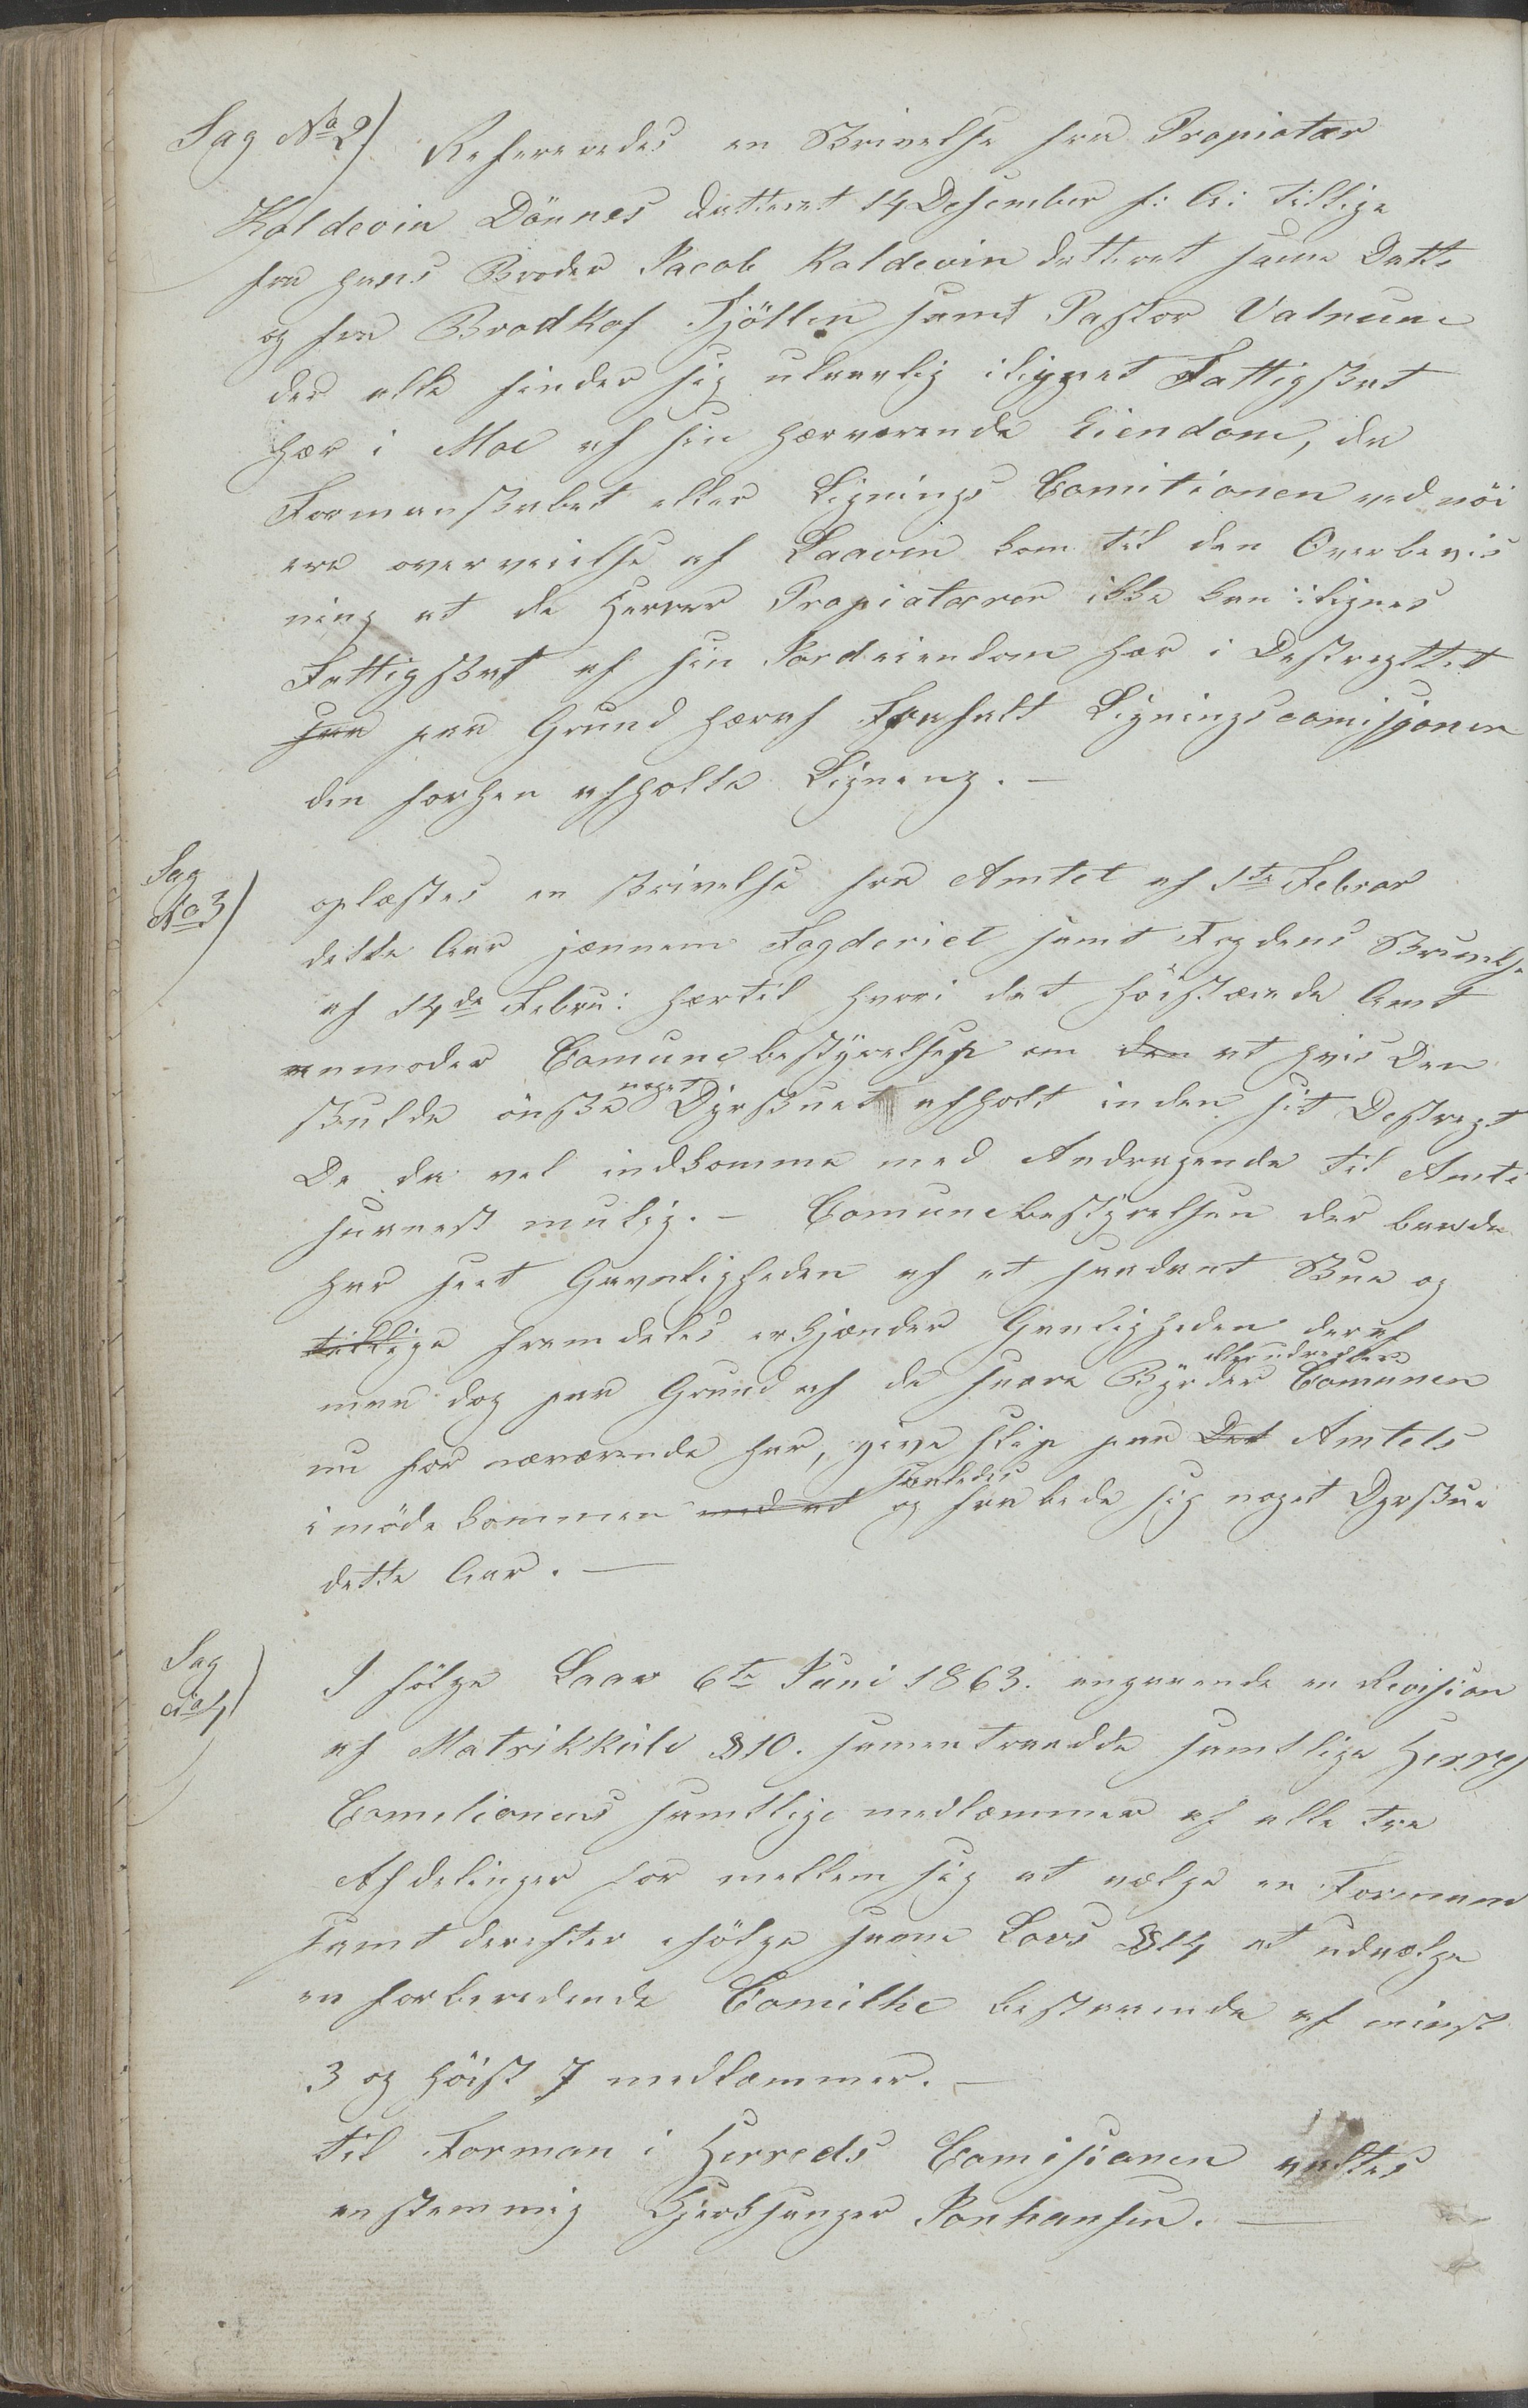 Sag No 2) Refereredes en Skrivelse fra Propiotær
Koldevin Dönnes datteret 14 Desember f: A: tillige
fra hans Broder Jacob Koldevin datteret same Datto
og fra Brodkof Tjötten samt Pastor Valnum
der alle finder sig ulovlig ilignet Fattigskat
hær i Moe af sin hærværende Eiendom, da
Formanskabet eller Lignings Comitionen ved nöi
ere overveielse af Laaven kom til den Overbevis
ning at de Herrer Propiotærer ikke kan ilignes
Fattigskat af sin Jordeiendom hær i Destregttet
saa paa Grund hæraf Frafalt Ligningscomisjonen
din forhen afholte Ligning. —
Sag
No 3)
oplæstes en Skrivelse fra Amtet af 1te Febrar
dette Aar jænnem Fogderiet samt Fogdens Skrivelse
af 14de Febru: hærtil hvori det höistærede Amt
anmoder Comunebestyrelsen om den at hvis Den
skulde önske noget Dyrskuet afholt inden sit Destregt
De da vel indkomme med Andragende til Amtet
snarest mulig. – Comunebestyrelsen der baade
har seet Gavnligheden af et saadant Skue og
tillige fremdeles erkjænder Gavnligheden deraf
eller udredsler
maa dog paa Grund af de svære Byrder Comunen
nu for nærværende har, give slip paa Det Amtets
saaledes
imödekommen med at og fra bede sig noget Dyrskue
dette Aar. —
Sag
No 4)
I fölge Laav 6te Juni 1863. angaaende en Revision
af Matrikkule § 10. samentraadde samtlige Herreds
Comitionens samtlige medlæmmer af alle tre
Afdelinger for mellem sig at vælge en Formand
samt derefter ifölge same Lovs § 14 at udvælge
en forberedende Comithe bestaaende af minst
3 og höist 7 medlæmmer. —
til Forman i Herreds Comisionen valtes
enstemmig Kjerksanger Jonhansen. —